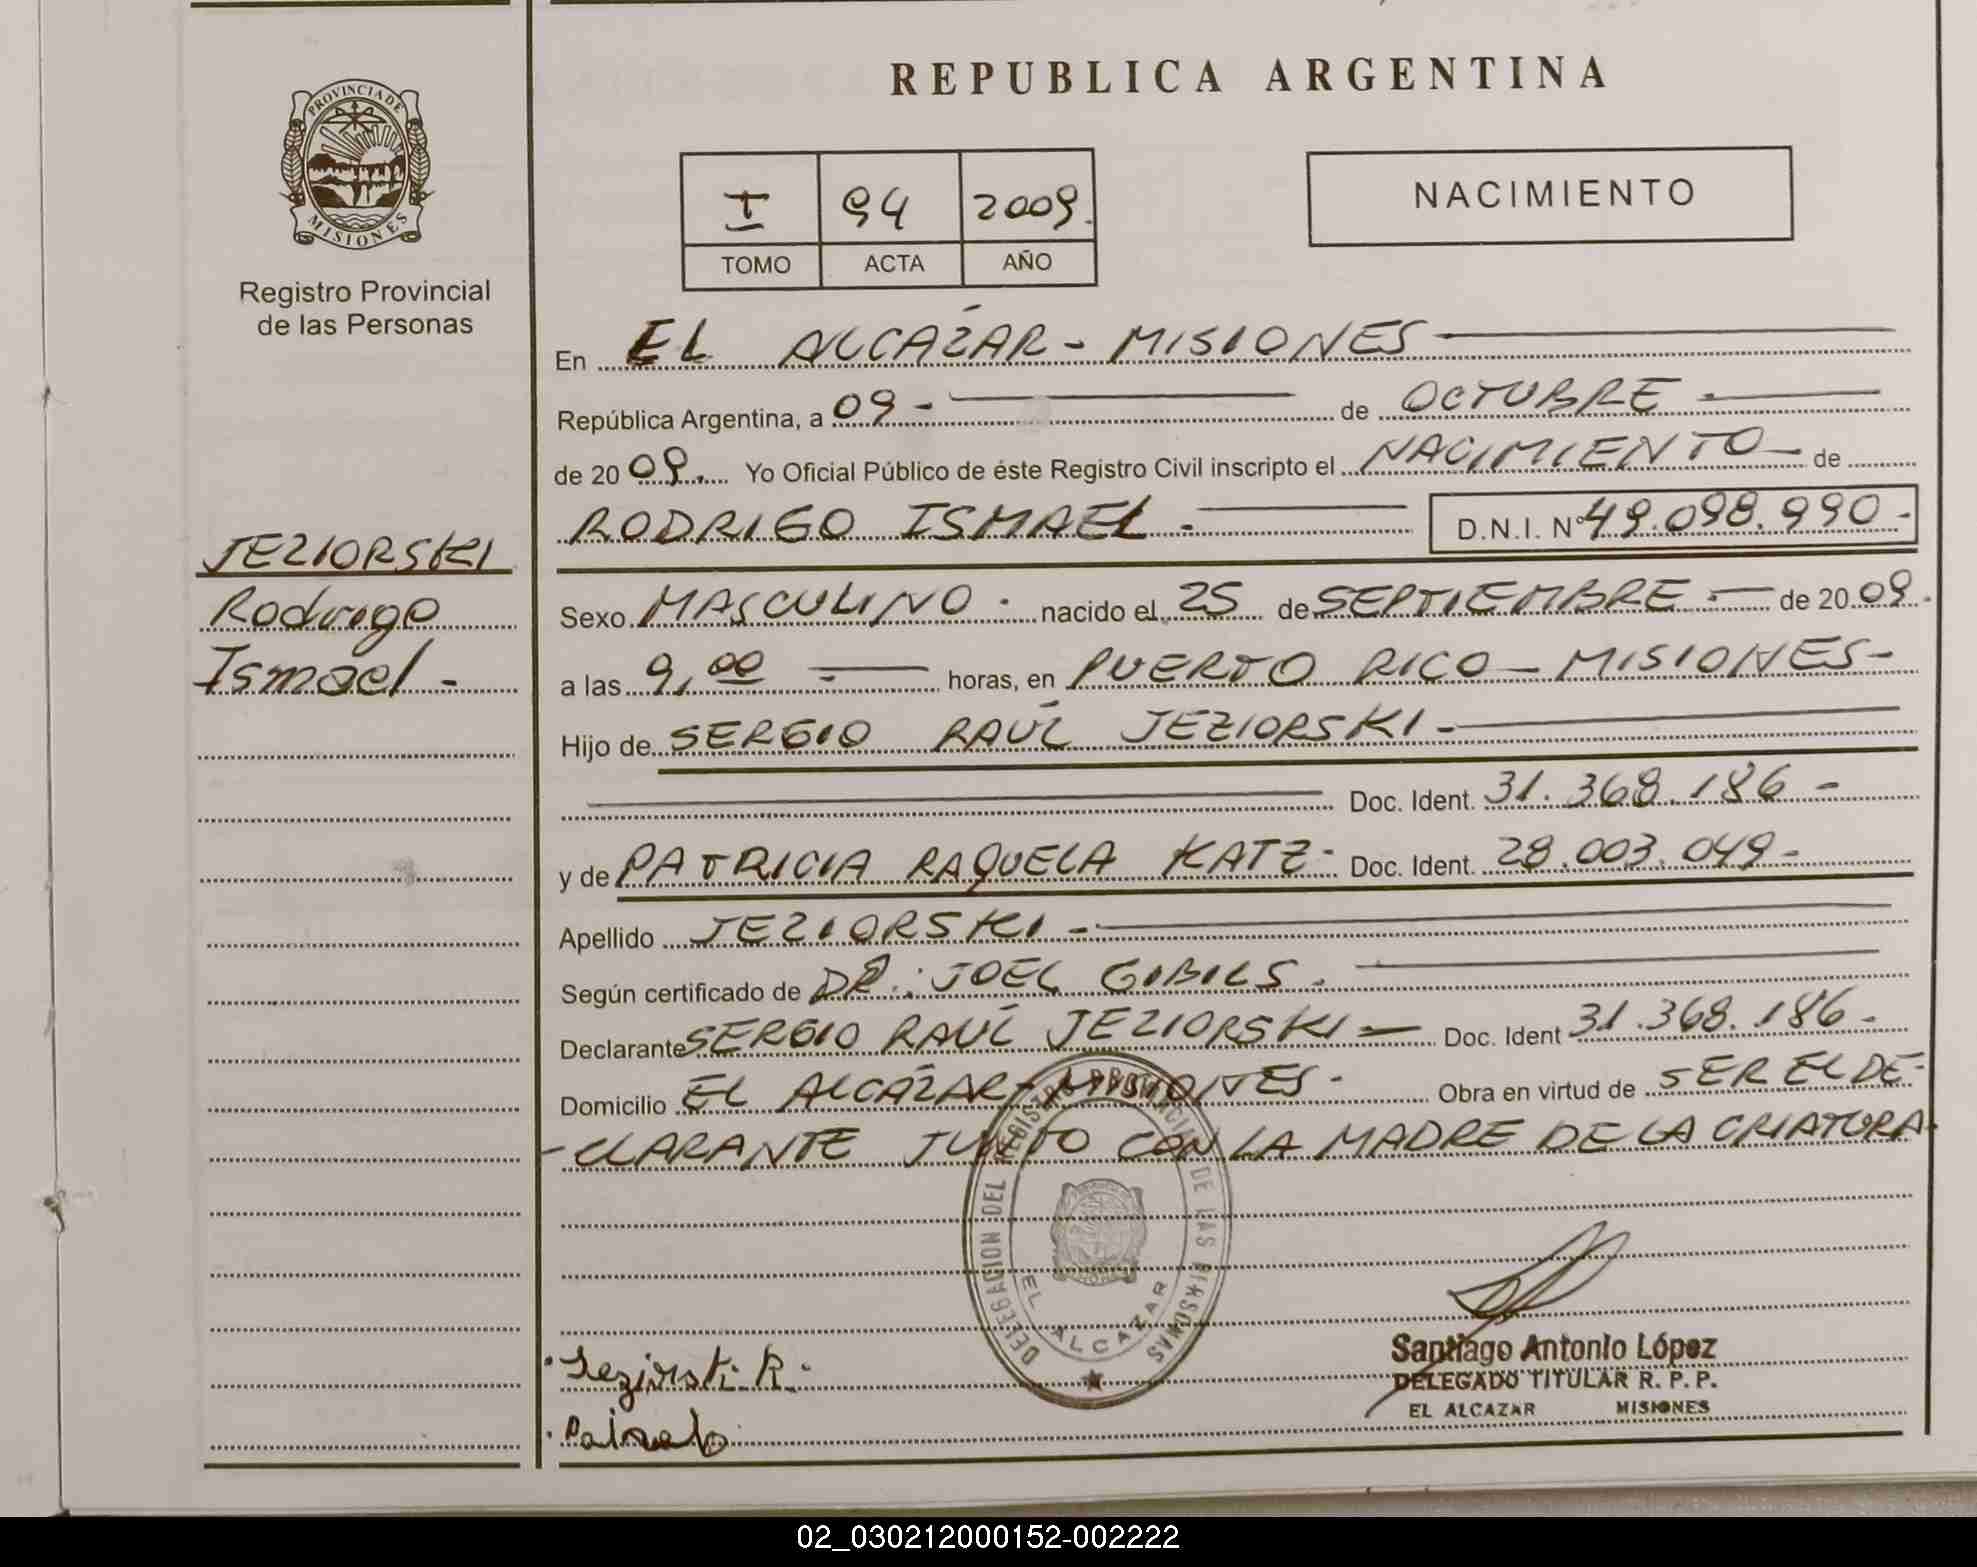 REPUBLICA ARGENTINA
PROVINCIA DE
MISIONES
Registro Provincial
de las Personas
I 94 2009.
TOMO ACTA AÑO
NACIMIENTO
En EL ALCÁZAR - MISIONES
República Argentina, a 09 - de OCTUBRE
de 20 09. Yo Oficial Público de éste Registro Civil inscripto el NACIMIENTO de
RODRIGO ISMAEL. D.N.I. Nº 49.098.990-
JEZIORSKI
Rodrigo
Ismael -
Sexo MASCULINO. nacido el 25 de SEPTIEMBRE de 20 09.
a las 9,00 horas, en PUERTO RICO - MISIONES-
Hijo de SERGIO RAÚL JEZIORSKI -
Doc. Ident. 31.368.186 -
y de PATRICIA RAQUELA KATZ- Doc. Ident. 28.003.049-
Apellido JEZIORSKI -
Según certificado de DR.: JOEL GIBILS.
Declarante SERGIO RAÚL JEZIORSKI - Doc. Ident 31.368.186-
Domicilio EL ALCÁZAR - MISIONES- Obra en virtud de SER EL DE-
-CLARANTE JUNTO CON LA MADRE DE LA CRIATURA.
DELEGACION DEL REGISTRO PROVINCIAL DE LAS PERSONAS
EL ALCAZAR
Santiago Antonio López
DELEGADO TITULAR R. P. P.
EL ALCAZAR MISIONES
02_030212000152-002222